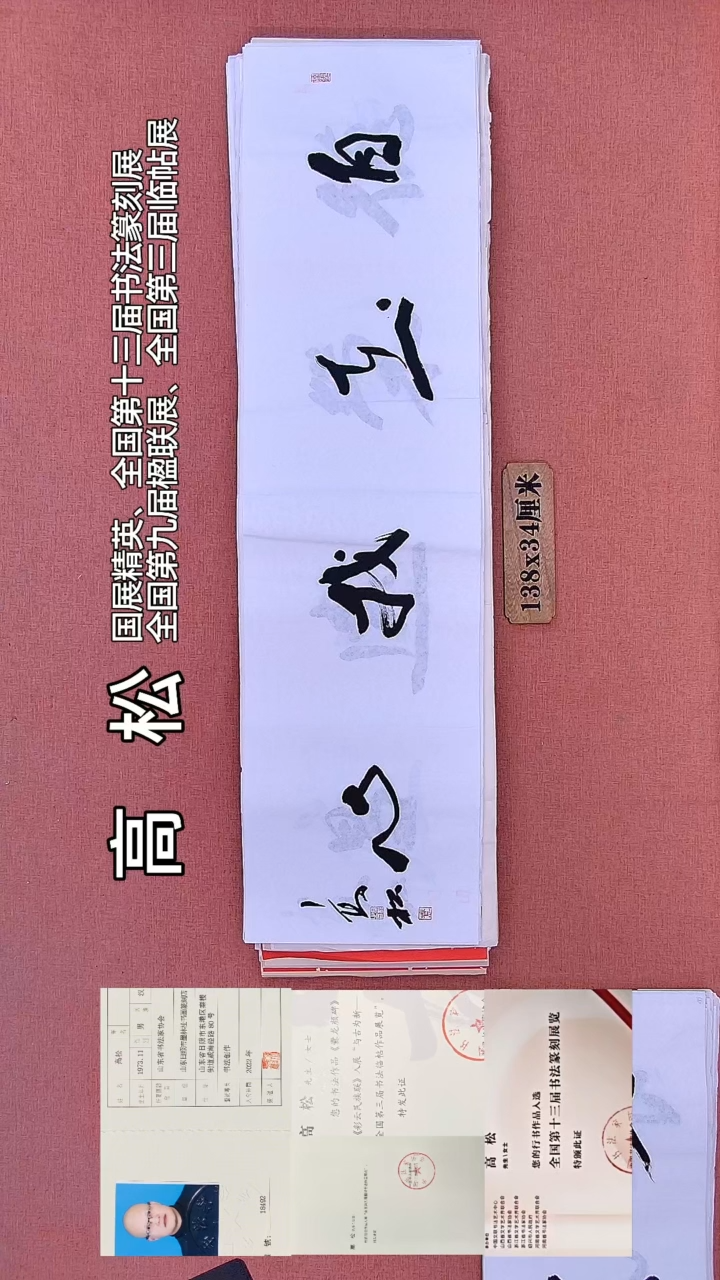 高 松
国展精英、全国第十三届书法篆刻展
全国第九届楹联展、全国第三届临帖展
自在我心
高松
138x34厘米
高松
男
1973.11
山东省书法家协会
书法创作
高 松 先生/女士
全国第三届书法临帖作品展览
特发此证
高 松
先生\女士
您的行书作品入选
全国第十三届书法篆刻展览
特颁此证